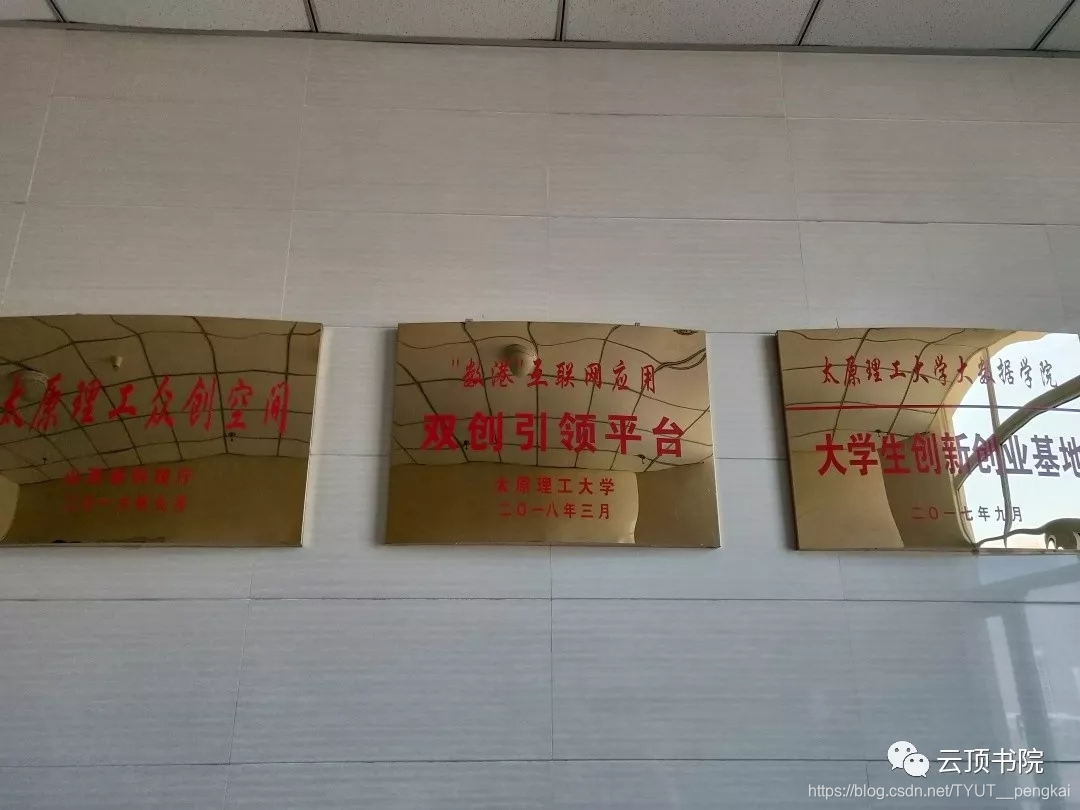 太原理工众创空间
"数港"互联网应用
双创引领平台
太原理工大学
二〇一八年三月
太原理工大学大数据学院
大学生创新创业基地
二〇一七年九月
云顶书院
https://blog.csdn.net/TYUT__pengkai